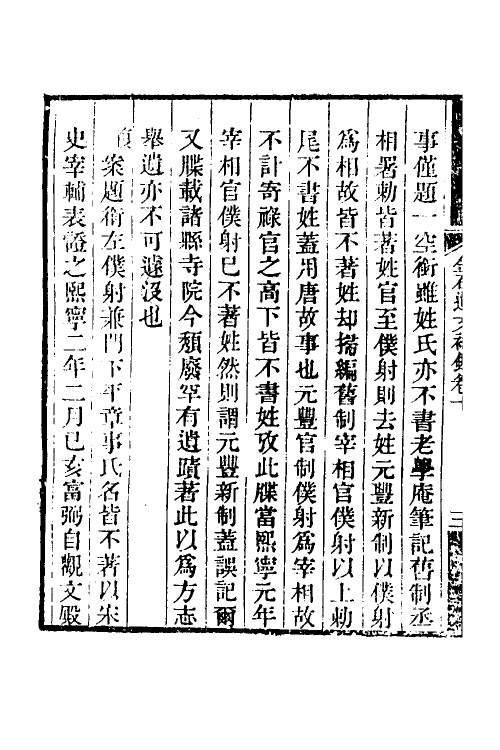 金石遺文補錄卷一
三
事僅題一空銜雖姓氏亦不書老學庵筆記舊制丞
相署勅皆著姓官至僕射則去姓元豐新制以僕射
爲相故皆不著姓却掃編舊制宰相官僕射以上勅
尾不書姓蓋用唐故事也元豐官制僕射爲宰相故
不計寄祿官之高下皆不書姓攷此牒當熙寧元年
宰相官僕射已不著姓然則謂元豐新制蓋誤記爾
又牒載諸縣寺院今頽廢罕有遺蹟著此以爲方志
舉遺亦不可遽沒也
案題銜左僕射兼門下平章事氏名皆不著以宋
史宰輔表證之熙寧二年二月已亥富弼自觀文殿